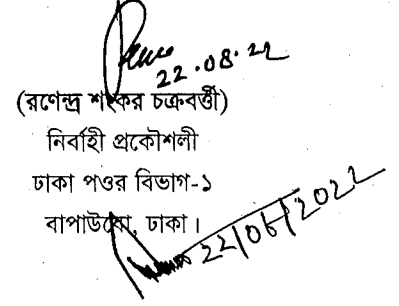 22.08.22
(রণেন্দ্র শংকর চক্রবর্ত্তী)
নির্বাহী প্রকৌশলী
ঢাকা পওর বিভাগ-১
বাপাউবো, ঢাকা।
22/06/2022